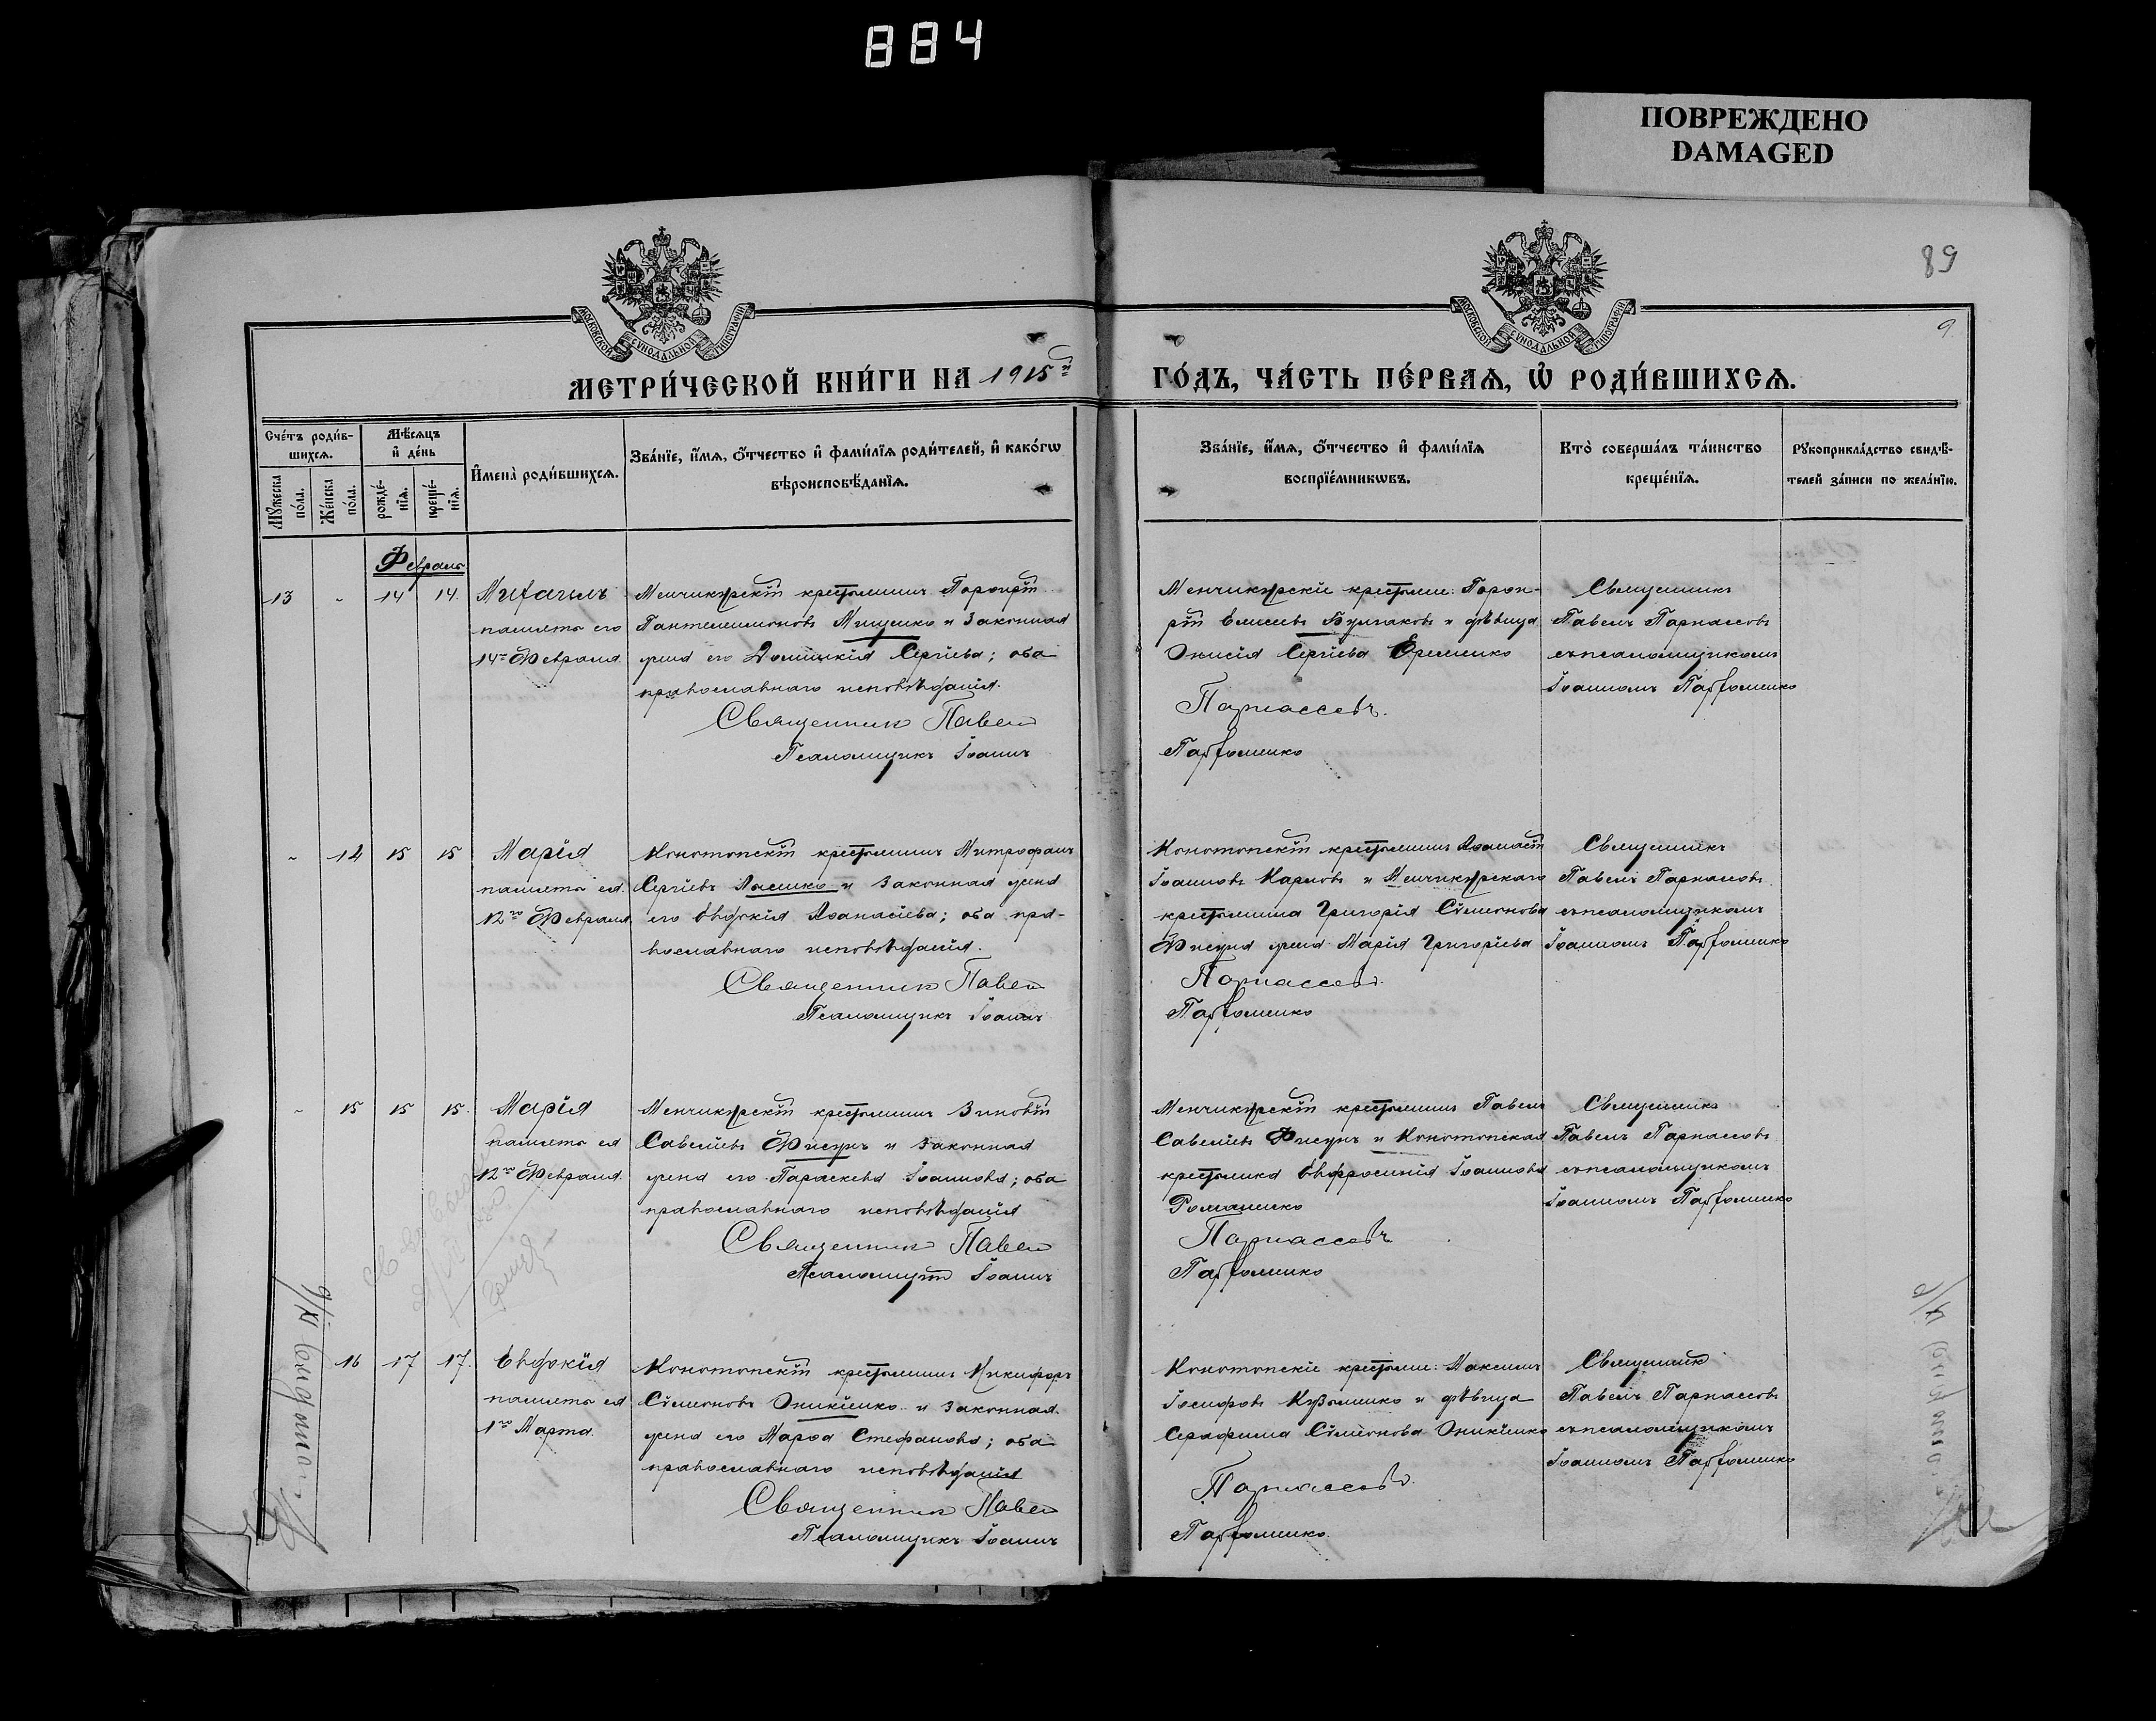 884
ПОВРЕЖДЕНО
DAMAGED
89
9
МОСКОВСКОЙ СѴНОДАЛЬНОЙ ТИПОГРАФІИ
МОСКОВСКОЙ СѴНОДАЛЬНОЙ ТИПОГРАФІИ
МЕТРИ́ЧЕСКОЙ КНИ́ГИ НА 1915й ГО́ДЪ, ЧА́СТЬ ПЕ́РВАѦ, Ѡ҆ РОДИ́ВШИХСѦ.
Сче́тъ роди́в-
шихсѧ.
Мꙋ́жеска по́ла.
Же́нска по́ла.
Мѣ́сѧцъ
и҆ де́нь
рожде́-
нїѧ.
креще́-
нїѧ.
И҆мена̀ роди́вшихсѧ.
Зва́нїе, и҆́мѧ, ѻ҆́тчество и҆ фами́лїѧ роди́телей, и҆ како́гѡ
вѣроисповѣ́данїѧ.
Зва́нїе, и҆́мѧ, ѻ҆́тчество и҆ фами́лїѧ
воспрїе́мникѡвъ.
Кто̀ соверша́лъ та́инство
креще́нїѧ.
Рꙋкоприкла́дство свидѣ́-
телей за́писи по жела́нїю.
Февраль
13 - 14 14.
Михаилъ
память его
14го Февраля.
Менчикурскій крестьянинъ Порфирій
Пантелеимоновъ Мищенко и законная
жена его Домникія Сергіева; оба
православнаго исповѣданія.
Священникъ Павелъ
Псаломщикъ Іоаннъ
Менчикурскіе крестьяне:
Елисеевъ Булгаковъ и дѣвица
Сергіева Еременко
Парнассовъ.
Парфоменко
Священникъ
Павелъ Парнассовъ
съ псаломщикомъ
Іоанномъ Парфоменко
- 14 15 15
Марія
память ея
12го Февраля.
Конотопскій крестьянинъ Митрофанъ
Сергіевъ Лысенко и законная жена
его Евдокія Аѳанасіева; оба пра-
вославнаго исповѣданія.
Священникъ Павелъ
Псаломщикъ Іоаннъ
Конотопскій крестьянинъ Аѳанасій
Іоанновъ Карповъ и Менчикурскаго
крестьянина Григорія Сѵмеонова
Фисуна жена Марія Григоріева
Парнассовъ.
Парфоменко
Священникъ
Павелъ Парнассовъ
съ псаломщикомъ
Іоанномъ Парфоменко
- 15 15 15.
Марія
память ея
12го Февраля.
Менчикурскій крестьянинъ Зиновій
Савеліевъ Фисунъ и законная
жена его Параскева Іоаннова; оба
православнаго исповѣданія
Священникъ Павелъ
Псаломщикъ Іоаннъ
Менчикурскій крестьянинъ Павелъ
Савеліевъ Фисунъ и Конотопская
крестьянка Евфросинія Іоаннова
Романенко
Парнассовъ
Парфоменко
Священникъ
Павелъ Парнассовъ
съ псаломщикомъ
Іоанномъ Парфоменко
16 17 17.
Евдокія
память ея
1го Марта.
Конотопскій крестьянинъ Никифоръ
Сѵмеоновъ Оникіенко и законная
жена его Марѳа Стефанова; оба
православнаго исповѣданія
Священникъ Павелъ
Псаломщикъ Іоаннъ
Конотопскіе крестьяне: Максимъ
Іосифовъ Кузьменко и дѣвица
Серафима Сѵмеонова Оникіенко
Парнассовъ.
Парфоменко.
Священникъ
Павелъ Парнассовъ
съ псаломщикомъ
Іоанномъ Парфоменко